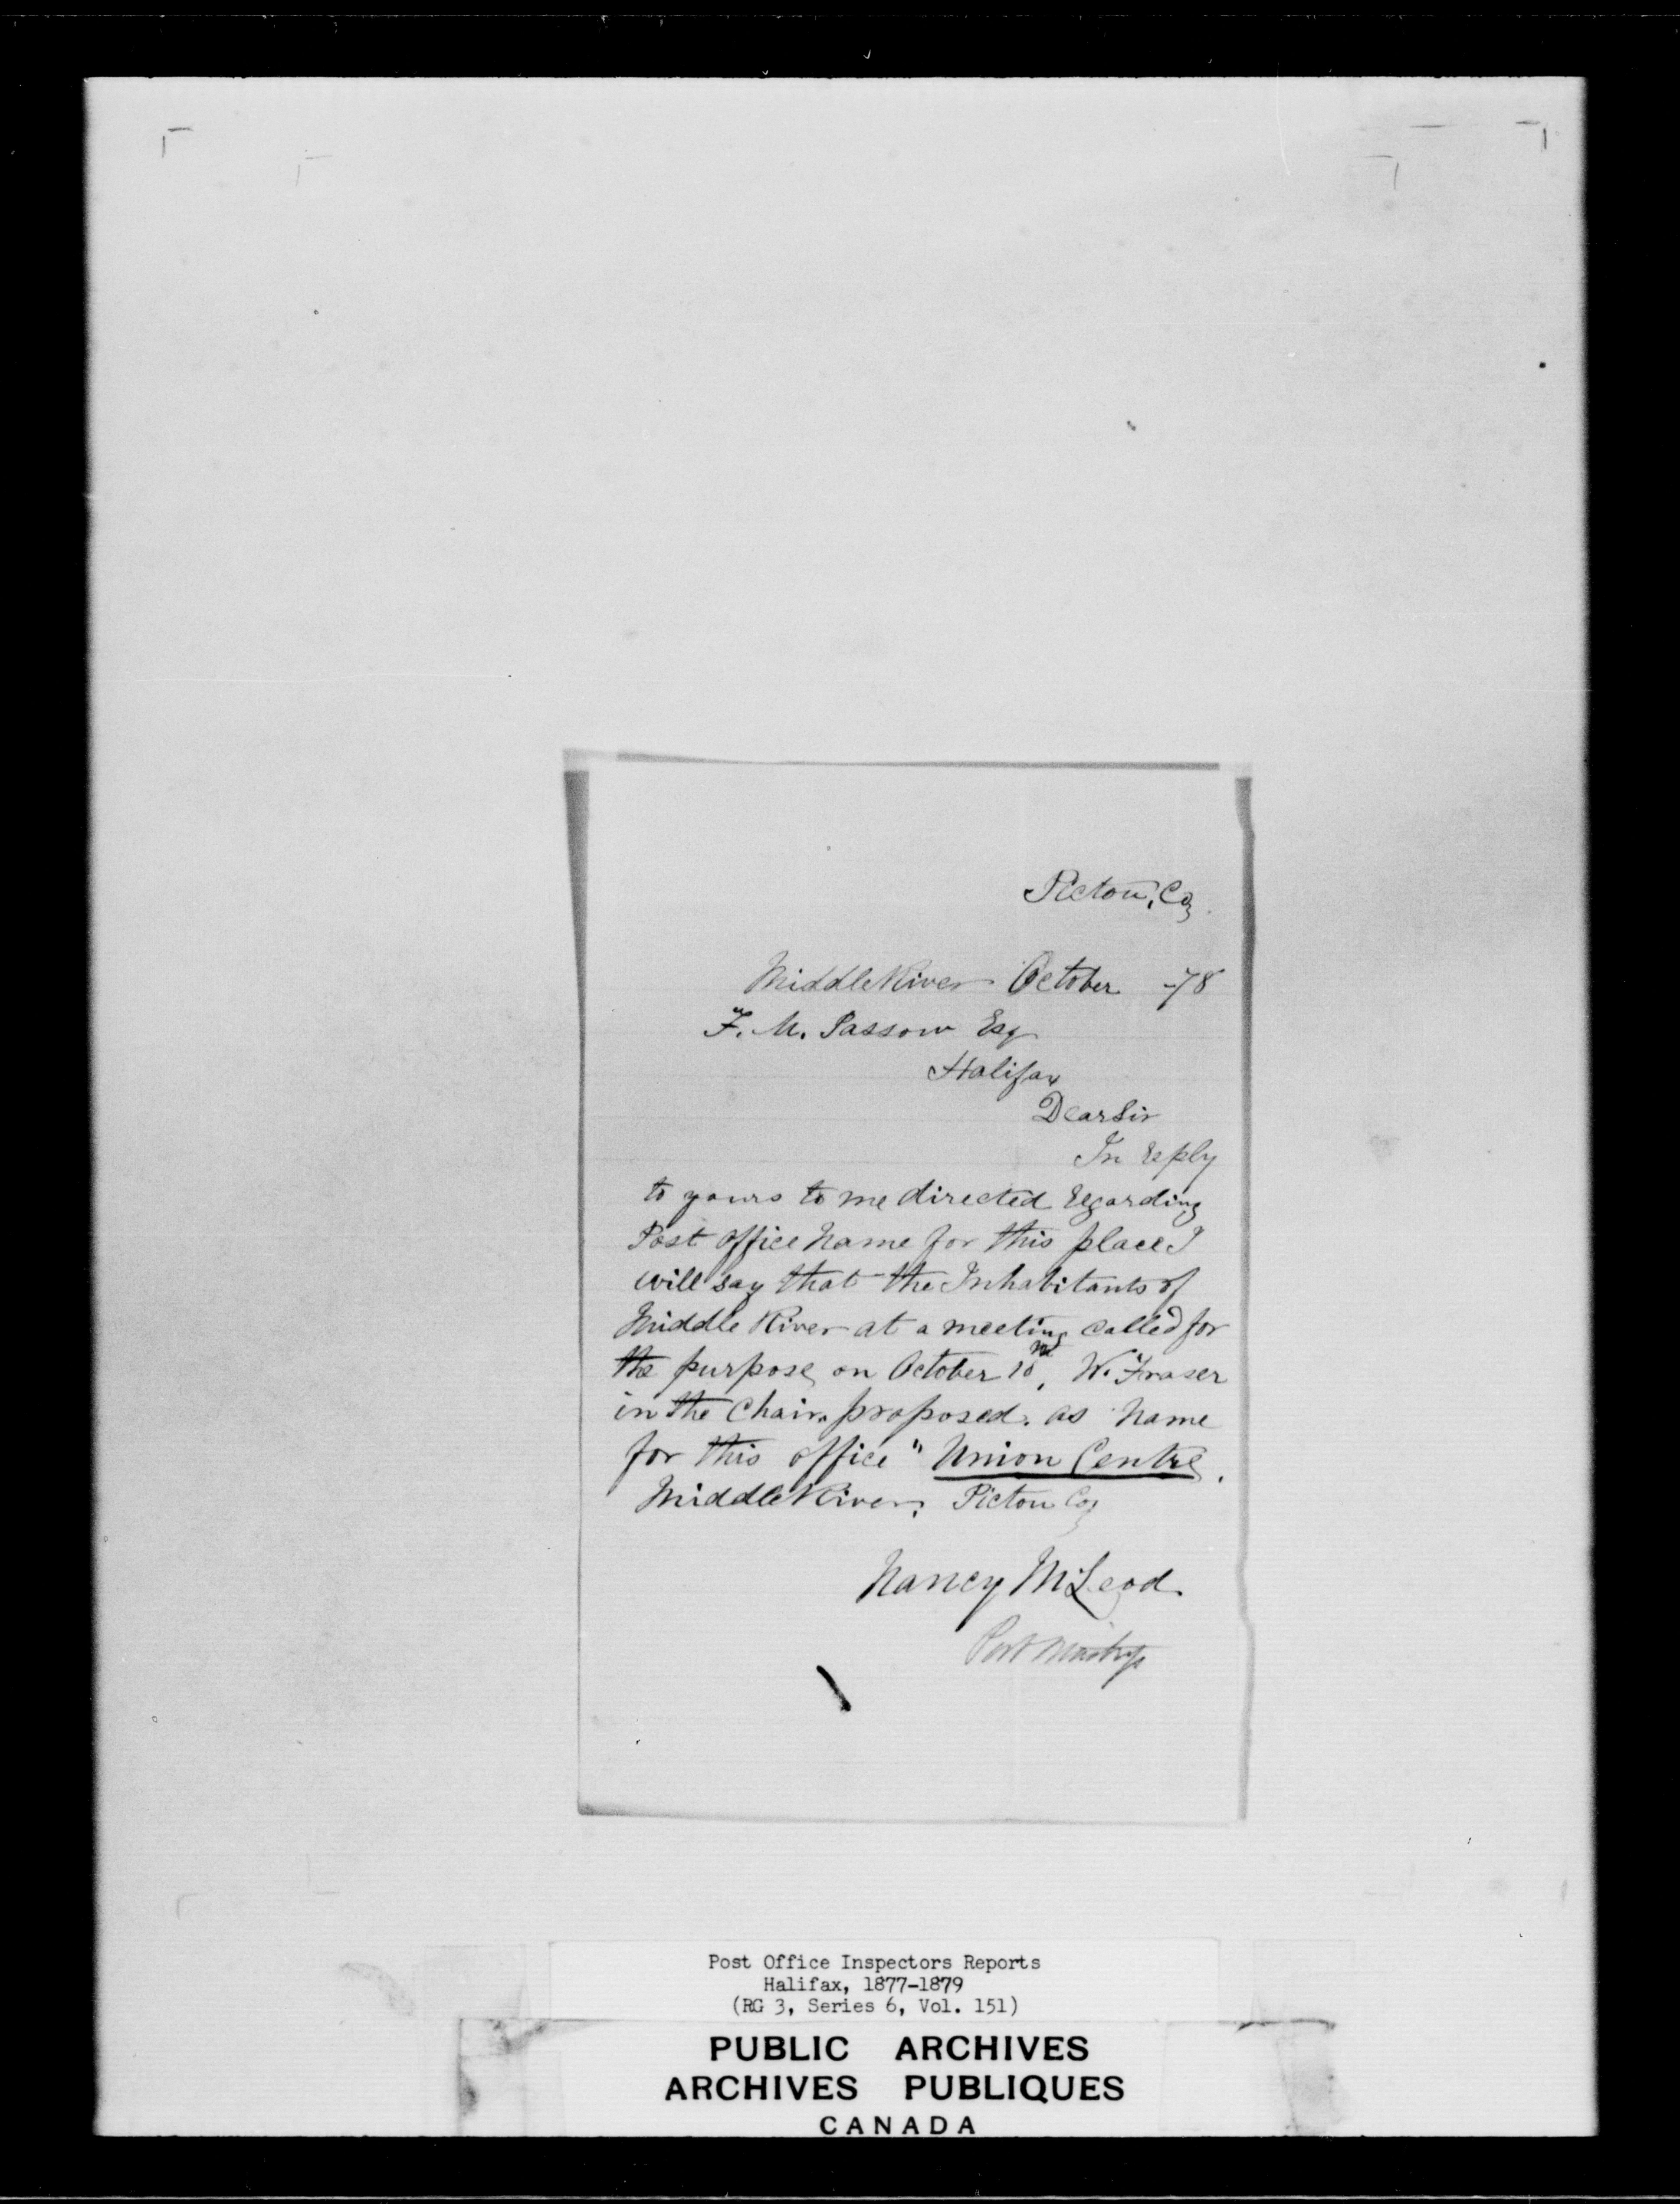 Pictou, Co,
Middle River October -78
F. M. Passow Esq
Halifax
Dear Sir
In Reply
to yours to me directed Regarding
Post Office Name for this place I
will say that the Inhabitants of
Middle River at a meeting called for
the purpose, on October 10, W. Fraser
in the Chair. proposed. as Name
for this office "Union Centre.
Middle River. Pictou Co,
Nancy McLeod.
Post Mistress
Post Office Inspectors Reports
Halifax, 1877-1879
(RG 3, Series 6, Vol. 151)
PUBLIC ARCHIVES
ARCHIVES PUBLIQUES
CANADA